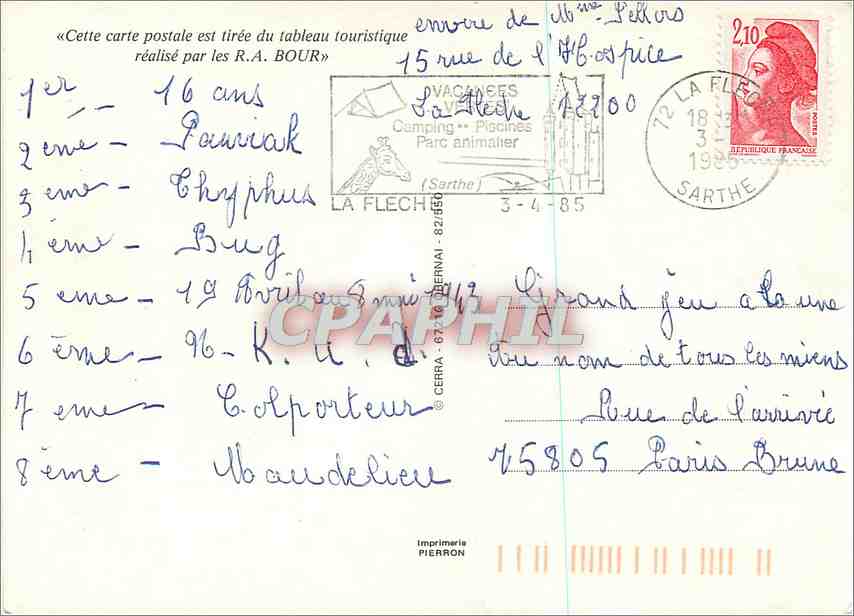 «Cette carte postale est tirée du tableau touristique
réalisé par les R.A. BOUR»
envoie de Mme Pellois
15 rue de l'Hospice
La Fleche 72200
VACANCES
VERTES
Camping •• Piscines
Parc animalier
(Sarthe)
LA FLECHE 3-4-85
72 LA FLECHE
18 H
3-4
1985
SARTHE
2,10
POSTES
REPUBLIQUE FRANCAISE
1er - 16 ans
2eme - Pauviak
3eme - Thyphus
4eme - Bug
5eme - 19 Avril au 8 mai 1943
6ème - 96 - K. u. d.
7eme - Colporteur
8ème - Mandelieu
Grand jeu a la une
Au nom de tous les miens
Rue de l'arrivée
75805 Paris Brune
© CERRA - 67210 OBERNAI - 82/550
CPAPHIL
Imprimerie
PIERRON